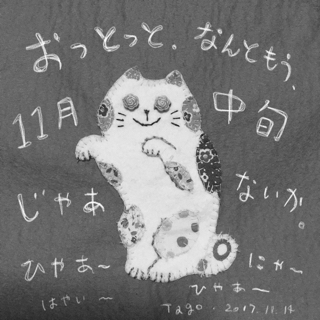 おっとっと。なんともう、
11月 中旬
じゃあ ないか。
ひゃあ〜 にゃ〜
ひゃあ〜
はやい〜
Tago. 2017.11.14